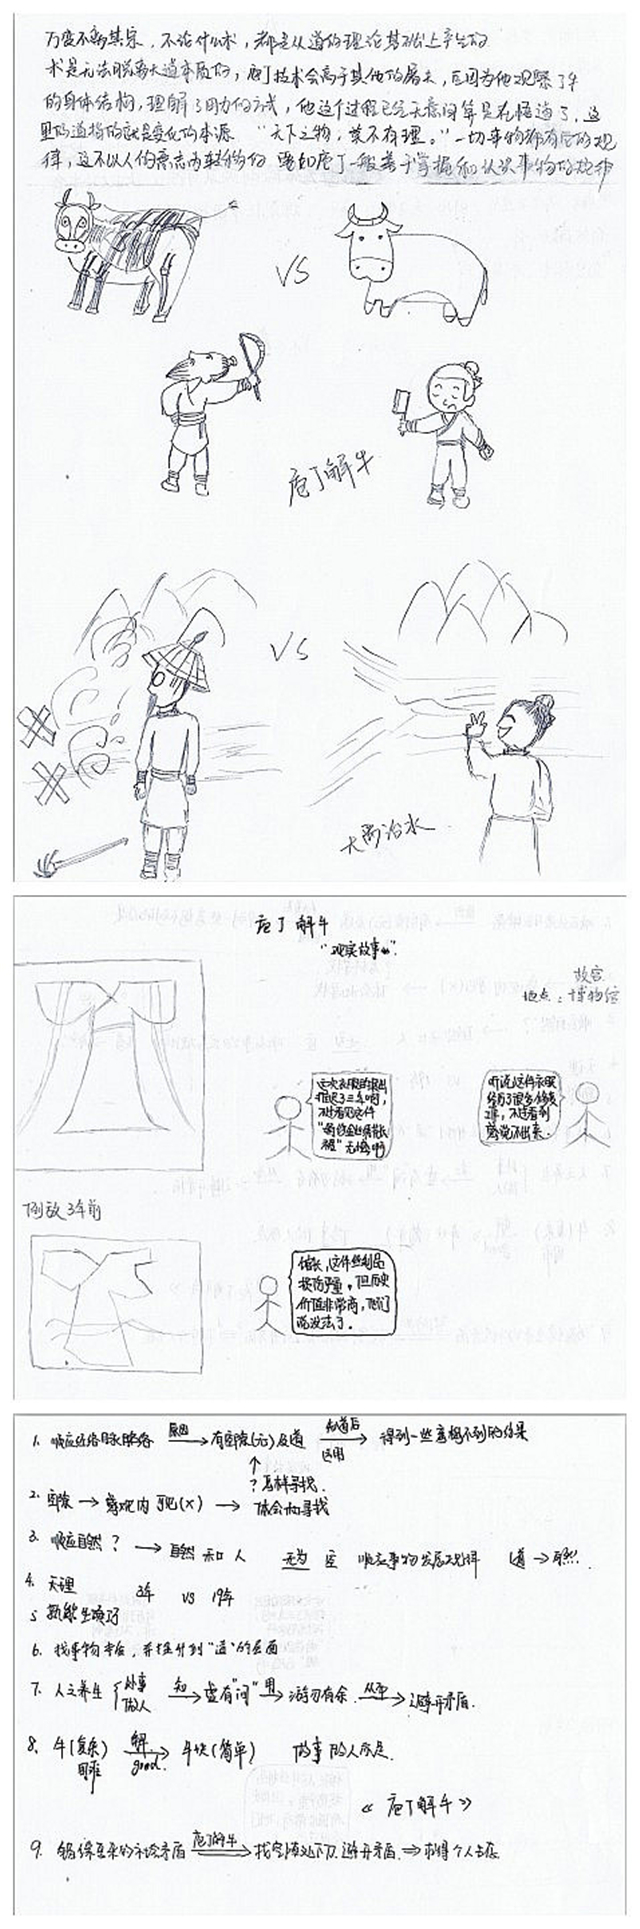 万变不离其宗，不论什么术，都是从道的理论基础上产生的
术是无法脱离大道本质的，庖丁技术会高于其他的屠夫，正因为他观察了牛
的身体结构，理解了用力的方式，他这个过程已经无意间算是在悟道了，这
里的道指的就是变化的本源 "天下之物，莫不有理。"一切事物都有它的规
律，这不以人的意志为转移的 要如庖丁一般善于掌握和认识事物的规律
VS
庖丁解牛
VS
大禹治水
庖丁解牛
"现实故事"
故宫
地点：博物馆
这次衣服的展出
推迟了三年啊，
不过看见这件
无憾啊
听说这件衣服
经历了很多修复
过程，不过看到
感觉不出来。
倒敌3年前
馆长，这件丝制品
损伤严重，但历史
价值非常高，他们
说没法了。
1. 顺应经络脉络 原因→ 有空隙(元)及道 知道后 运用→ 得到一些意想不到的结果
↑
?怎样寻找.
2. 空隙 → 客观内 (x) → 体会和寻找
3. 顺应自然？ → 自然和人 无为 应 顺应事物发展规律 道→自然.
4. 天理 3年 vs 19年
5 熟能生巧
6. 找事物本质，并提升到"道"的层面
7. 人之养生 { 处事 做人 知→ 虚有"间" 用→ 游刃有余. 从而→ 避开矛盾.
8. 牛(复杂) 解→ 牛块(简单) 做事做人亦是.
困难 good.
《庖丁解牛》
9. 错综复杂的社会矛盾 庖丁解牛⇒ 找空隙处下刀.避开矛盾. ⇒ 求得个人生存